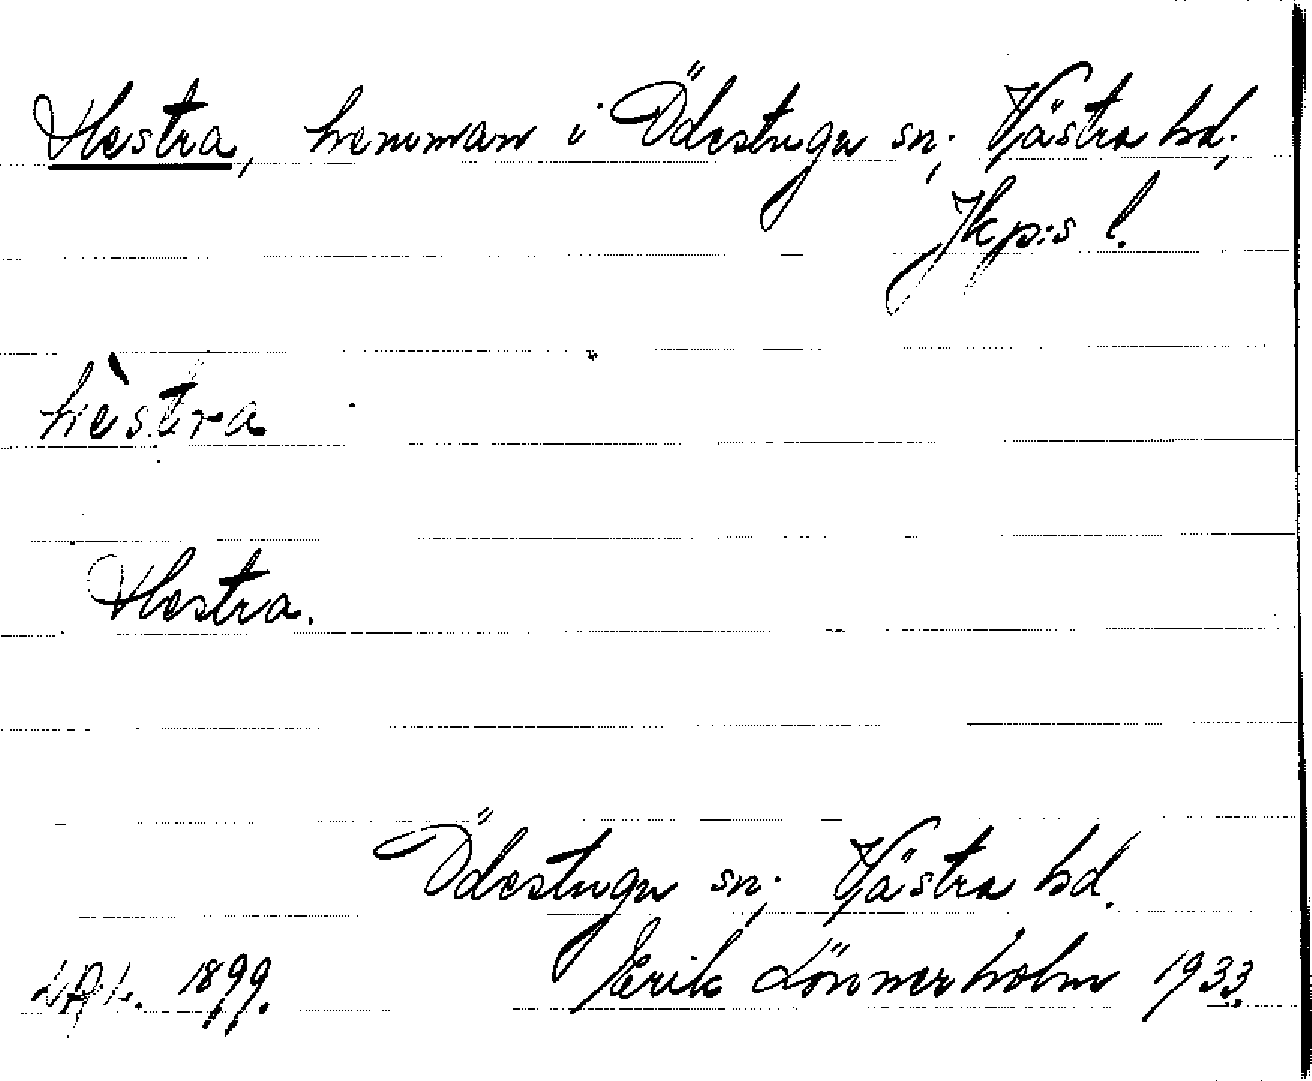 Hestra, hemman i Ödestugu sn; Västra hd;
Jkp:s l.
hèstra
Hestra.
Ödestugu sn; Västra hd.
1899. Erik Lönnerholm 1933.